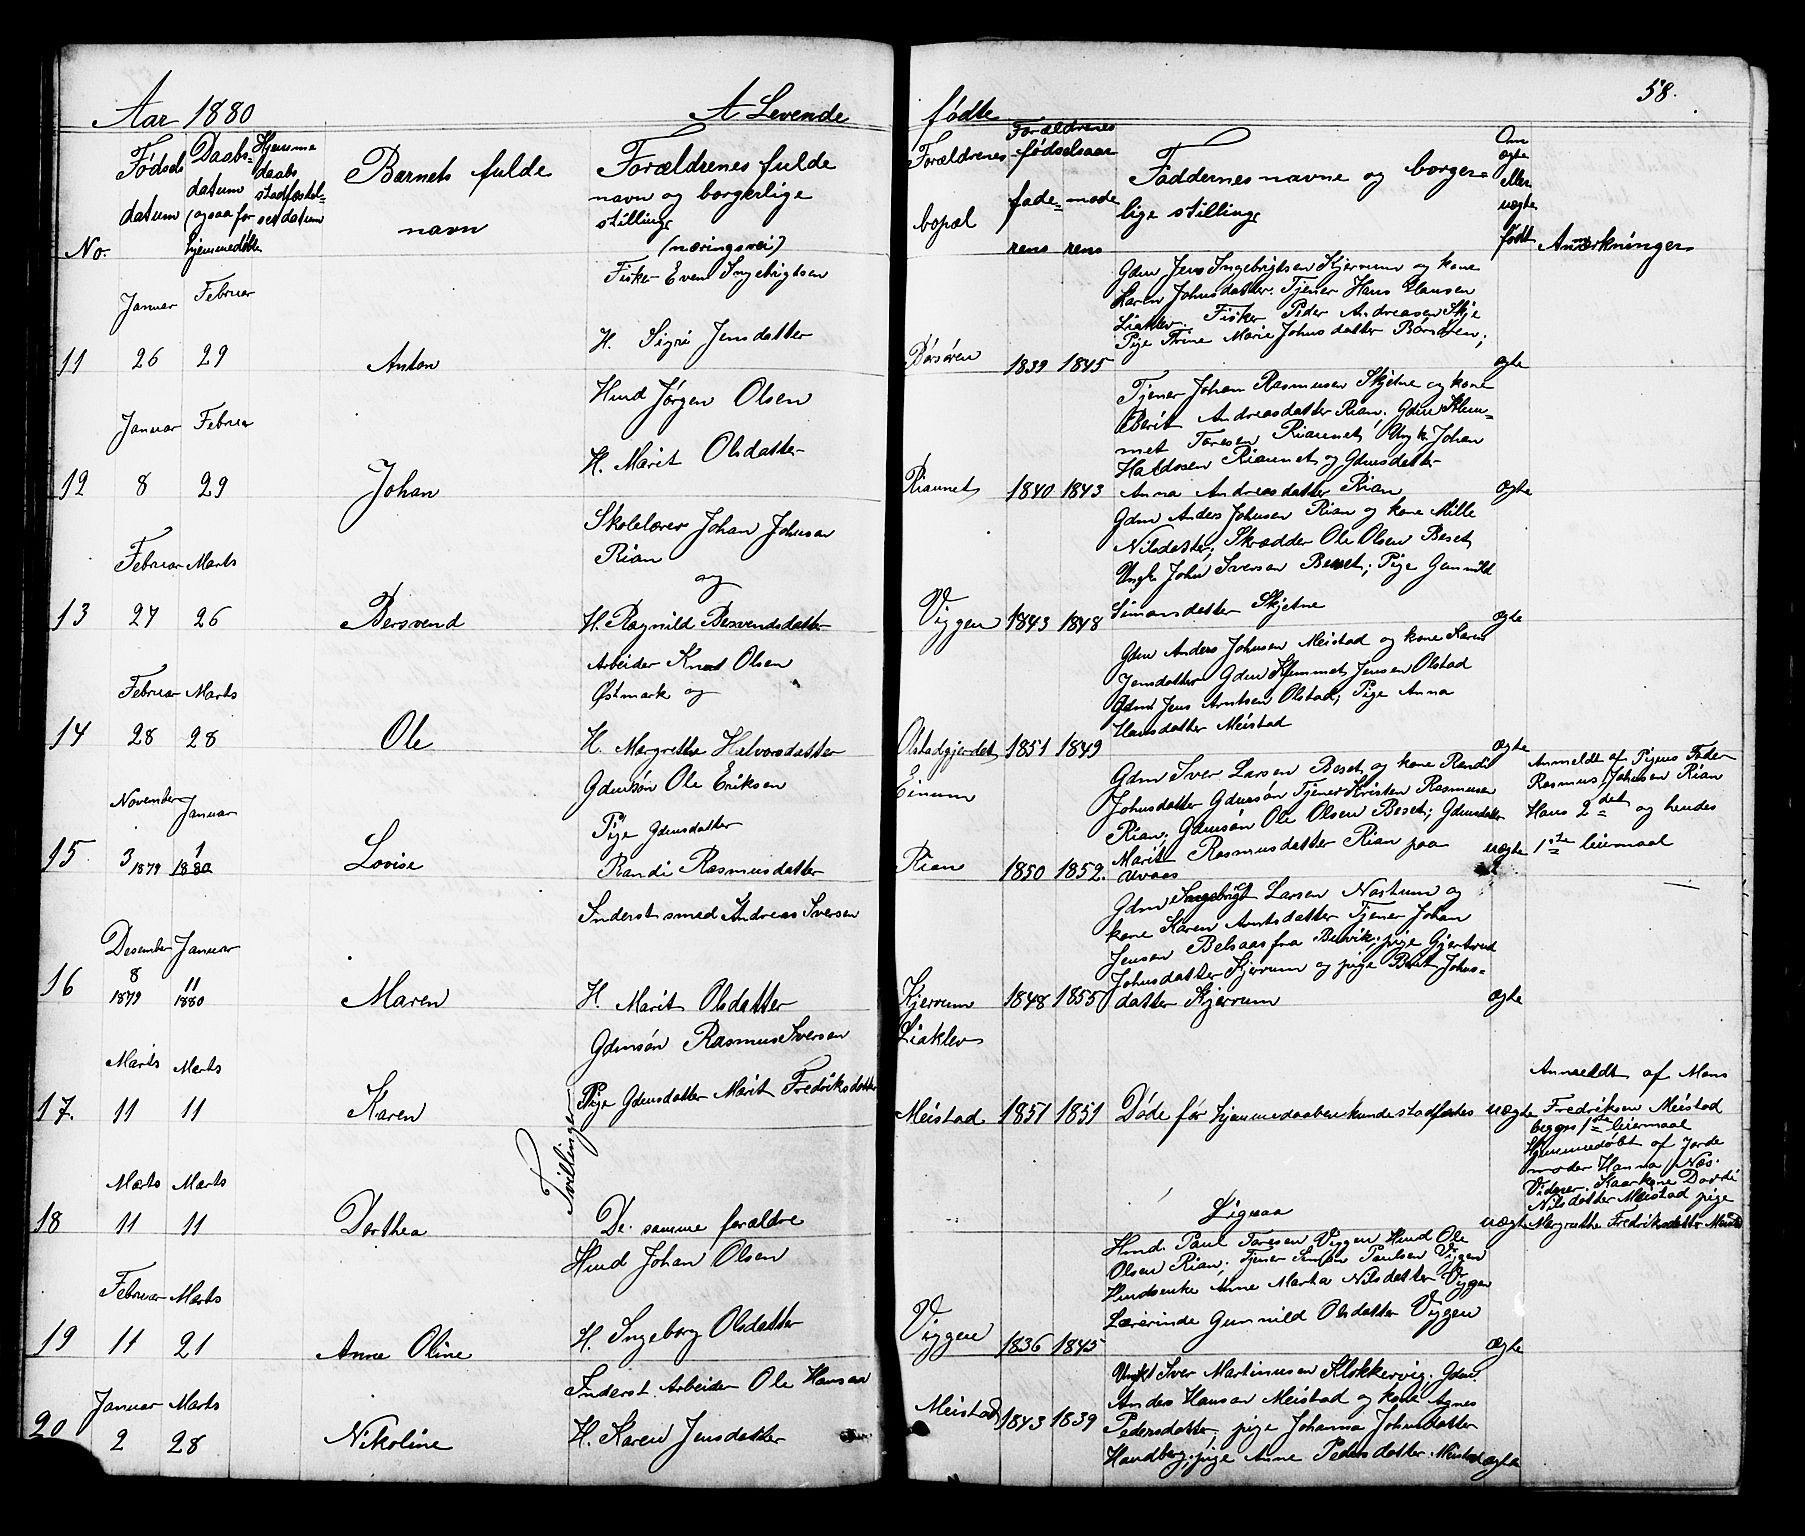 58.
Aar 1880
A Levende
fødte
No.
Fødsels
datum
Daabs-
datum
(ogsaa for
hjemmedøbte
Hjemme
daabs
stadfæstel-
ses datum
Barnets fulde
navn
Forældrenes fulde
navn og borgerlige
stilling
(næringsvei)
Forældrenes
bopæl
Forældrenes
fødselsaar
fade- mode
rens rens
Faddernes navne og borger-
lige stilling
Om
ægte
eller
uægte
født
Anmærkninger
11
Januar
26
Februar
29
Anton
Fisker Even Ingebrigtsen
H. Sigri Jensdatter
Børsøren
1839 1845
Gdm Jens Ingebrigtsen Kjerrum og kone
Karen Johnsdatter. Tjener Hans Hansen
Liaklev. Fisker Peder Andreasen Skje
Pige Trine Marie Johnsdatter Børsøren;
ægte
12
Januar
8
Februar
29
Johan
Husd Jørgen Olsen
H. Marit Olsdatter
Riannet
1840 1843
Tjener Johan Rasmusen Skjetne og kone
Berit Andreasdatter Rian. Gdm Klem-
met Toresen Riannet, Ungk. Johan
Haldosen Riannet og Gdmsdatter
Anna Andreasdatter Rian
ægte
13
Februar
27
Marts
26
Bersvend
Skolelærer Johan Johnsen
Rian
og
H. Ragnild Bersvendsdatter
Viggen
1843 1848
Gdm Anders Johnsen Rian og kone Mille
Nilsdatter; Skrædder Ole Olsen Beset
Ungk John Iversen Beset; Pige Gunnild
Simonsdatter Skjetne
ægte
14
Februar
28
Marts
28
Ole
Arbeider Knut Olsen
Østmark og
H. Margrethe Halvorsdatter
Olstadgjerdet
1851 1849
Gdm Anders Johnsen Meistad og kone Karen
Jensdatter Gdm Klemmet Jensen Olstad
Gdm Jens Arntsen Olstad; Pige Anna
Hansdatter Meistad
ægte
15
November
3 1879
Januar
1
1880
Lovise
Gdmsøn Ole Eriksen
Pige Gdmsdatter
Randi Rasmusdatter
Einum
Rian
1850 1852.
Gdm Iver Larsen Beset og kone Randi
Johnsdatter Gdmsøn Tjener Kristen Rasmusen
Rian; Gdmsøn Ole Olsen Beset; Gdmsdatter
Marit Rasmusdatter Rian paa
Uvaas
uægte
Anmeldt af Pigens Fader
Rasmus Johnsen Rian
Hans 2det og hendes
1ste leiermaal
16
Desember
8
1879
Januar
11
1880
Maren
Inderst smed Andreas Iversen
H. Marit Olsdatter
Kjerrum
1848 1855
Gdm Ingebrigt Larsen Nostum og
kone Karen Arntsdatter Tjener Johan
Jensen Belsaas fra Buvik; pige Gjertrud
Johnsdatter Kjerrum og pige Berit Johns-
datter Kjerrum
ægte
17.
Marts
11
Marts
11
Karen
Gdmsøn Rasmus Iversen
Pige Gdmsdatter Marit Fredriksdatter
Tvillinger
Liaklev
Meistad
1851 1851
Døde før hjemmedaaben kunde stadfæstes
uægte
Anmeldt af Mons
Fredriksen Meistad
begges 1ste leiermaal
Hjemmedøbt af Jorde
moder Hanna Næs.
Vidner. Kaarkone Dordi
Nilsdatter Meistad pige
Margrethe Fredriksdatter Meistad
18
Marts
11
Marts
11
Dorthea
De samme forældre
Ligesaa
uægte
19
Februar
11
Marts
21
Anne Oline
Husd Johan Olsen
H. Ingeborg Olsdatter
Viggen
1836 1845
Husd. Paul Toresen Viggen Husd Ole
Olsen Rian; Tjener Simon Paulsen Viggen
Husdsenke Anne Marta Nilsdatter Viggen
Lærerinde Gunnild Olsdatter Viggen
ægte
20
Januar
2
Marts
28
Nikoline
Inderst. Arbeider Ole Hansen
H. Karen Jensdatter
Meistad
1843 1839
Ungk Iver Martinusen Klokkervig. Gdm.
Anders Hansen Meistad og kone Agnes
Pedersdatter; pige Johanna Johnsdatter
Handberg; pige Anne Pedersdatter Meistad
ægte